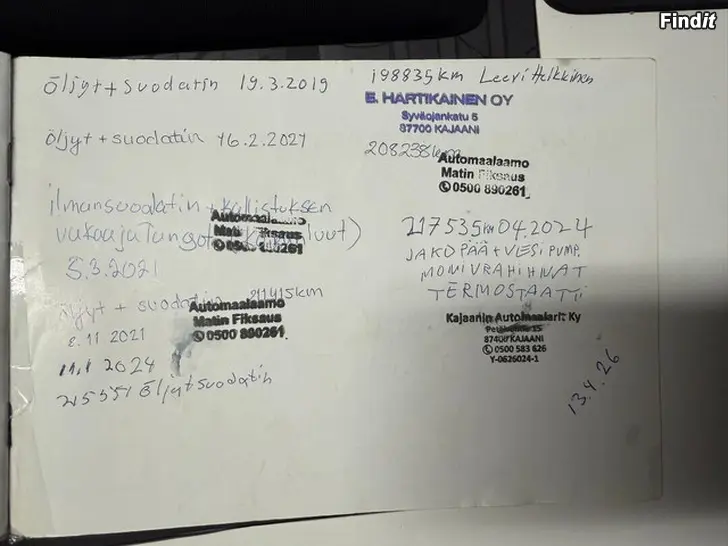 Findit
öljyt + suodatin 19.3.2019 198835km Leevi Heikkinen
E. HARTIKAINEN OY
Syväojankatu 6
87700 KAJAANI
öljyt + suodatin 16.2.2021 208238km
Automaalaamo
Matin Fiksaus
✆ 0500 890261
ilmansuodatin + kallistuksen
vakaajatangot
5.3.2021
Automaalaamo
Matin Fiksaus
✆ 0500 890261
öljyt + suodatin 211415km
8.11 2021
Automaalaamo
Matin Fiksaus
✆ 0500 890261
11.1 2024
215551 Öljyt suodatin
217535km 04.2024
JAKOPÄÄ + VESIPUMP.
MONIURAHIHNAT
TERMOSTAATTI
Kajaanin Automaalarit Ky
87400 KAJAANI
✆ 0500 583 626
Y-0626024-1
13.4.26